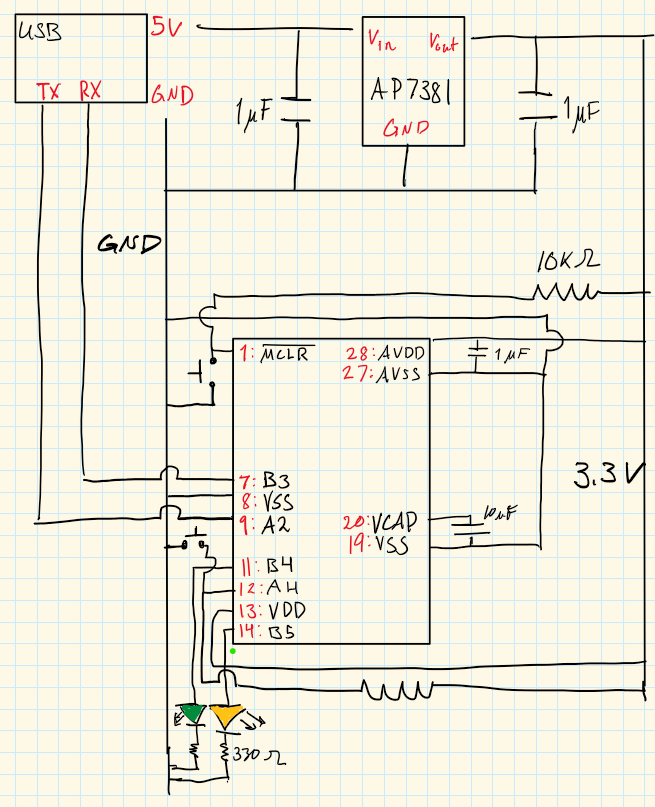 USB 5V
TX RX GND
1µF
Vin Vout
AP7381
GND
1µF
GND
10KΩ
1: MCLR
28: AVDD
27: AVSS
1µF
3.3V
7: B3
8: VSS
9: A2
20: VCAP
19: VSS
10µF
11: B4
12: A4
13: VDD
14: B5
330Ω